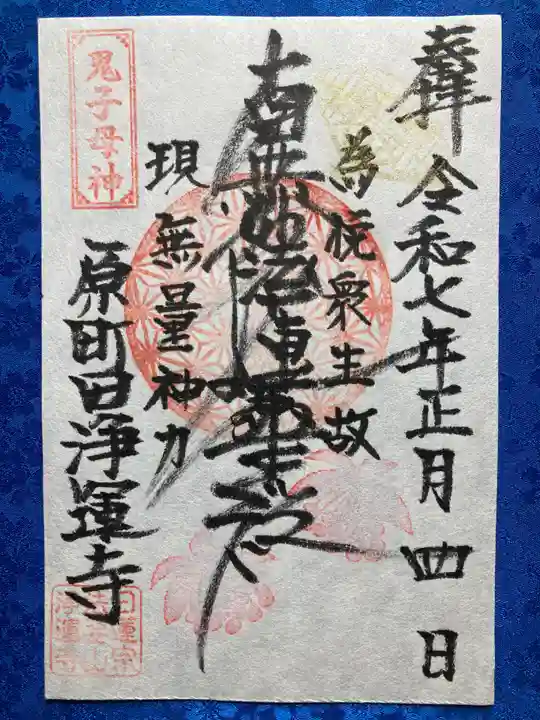 奉拝
令和七年正月四日
為悦衆生故
南無妙法蓮華経
現無量神力
鬼子母神
原町田浄運寺
日蓮宗
浄運寺